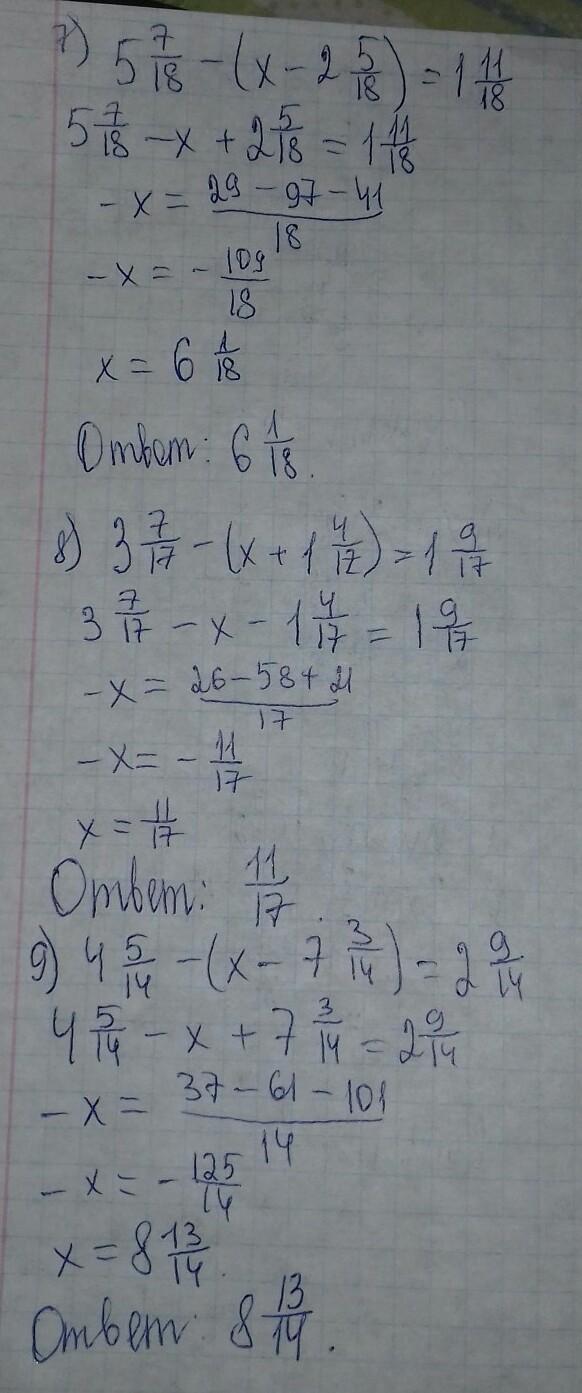 7) 5 7/18 - (x - 2 5/18) = 1 11/18
5 7/18 - x + 2 5/18 = 1 11/18
- x = (29 - 97 - 41)/18
- x = - 109/18
x = 6 1/18
Ответ: 6 1/18.
8) 3 7/17 - (x + 1 4/17) = 1 9/17
3 7/17 - x - 1 4/17 = 1 9/17
- x = (26 - 58 + 21)/17
- x = - 11/17
x = 11/17
Ответ: 11/17.
9) 4 5/14 - (x - 7 3/14) = 2 9/14
4 5/14 - x + 7 3/14 = 2 9/14
- x = (37 - 61 - 101)/14
- x = - 125/14
x = 8 13/14.
Ответ: 8 13/14.